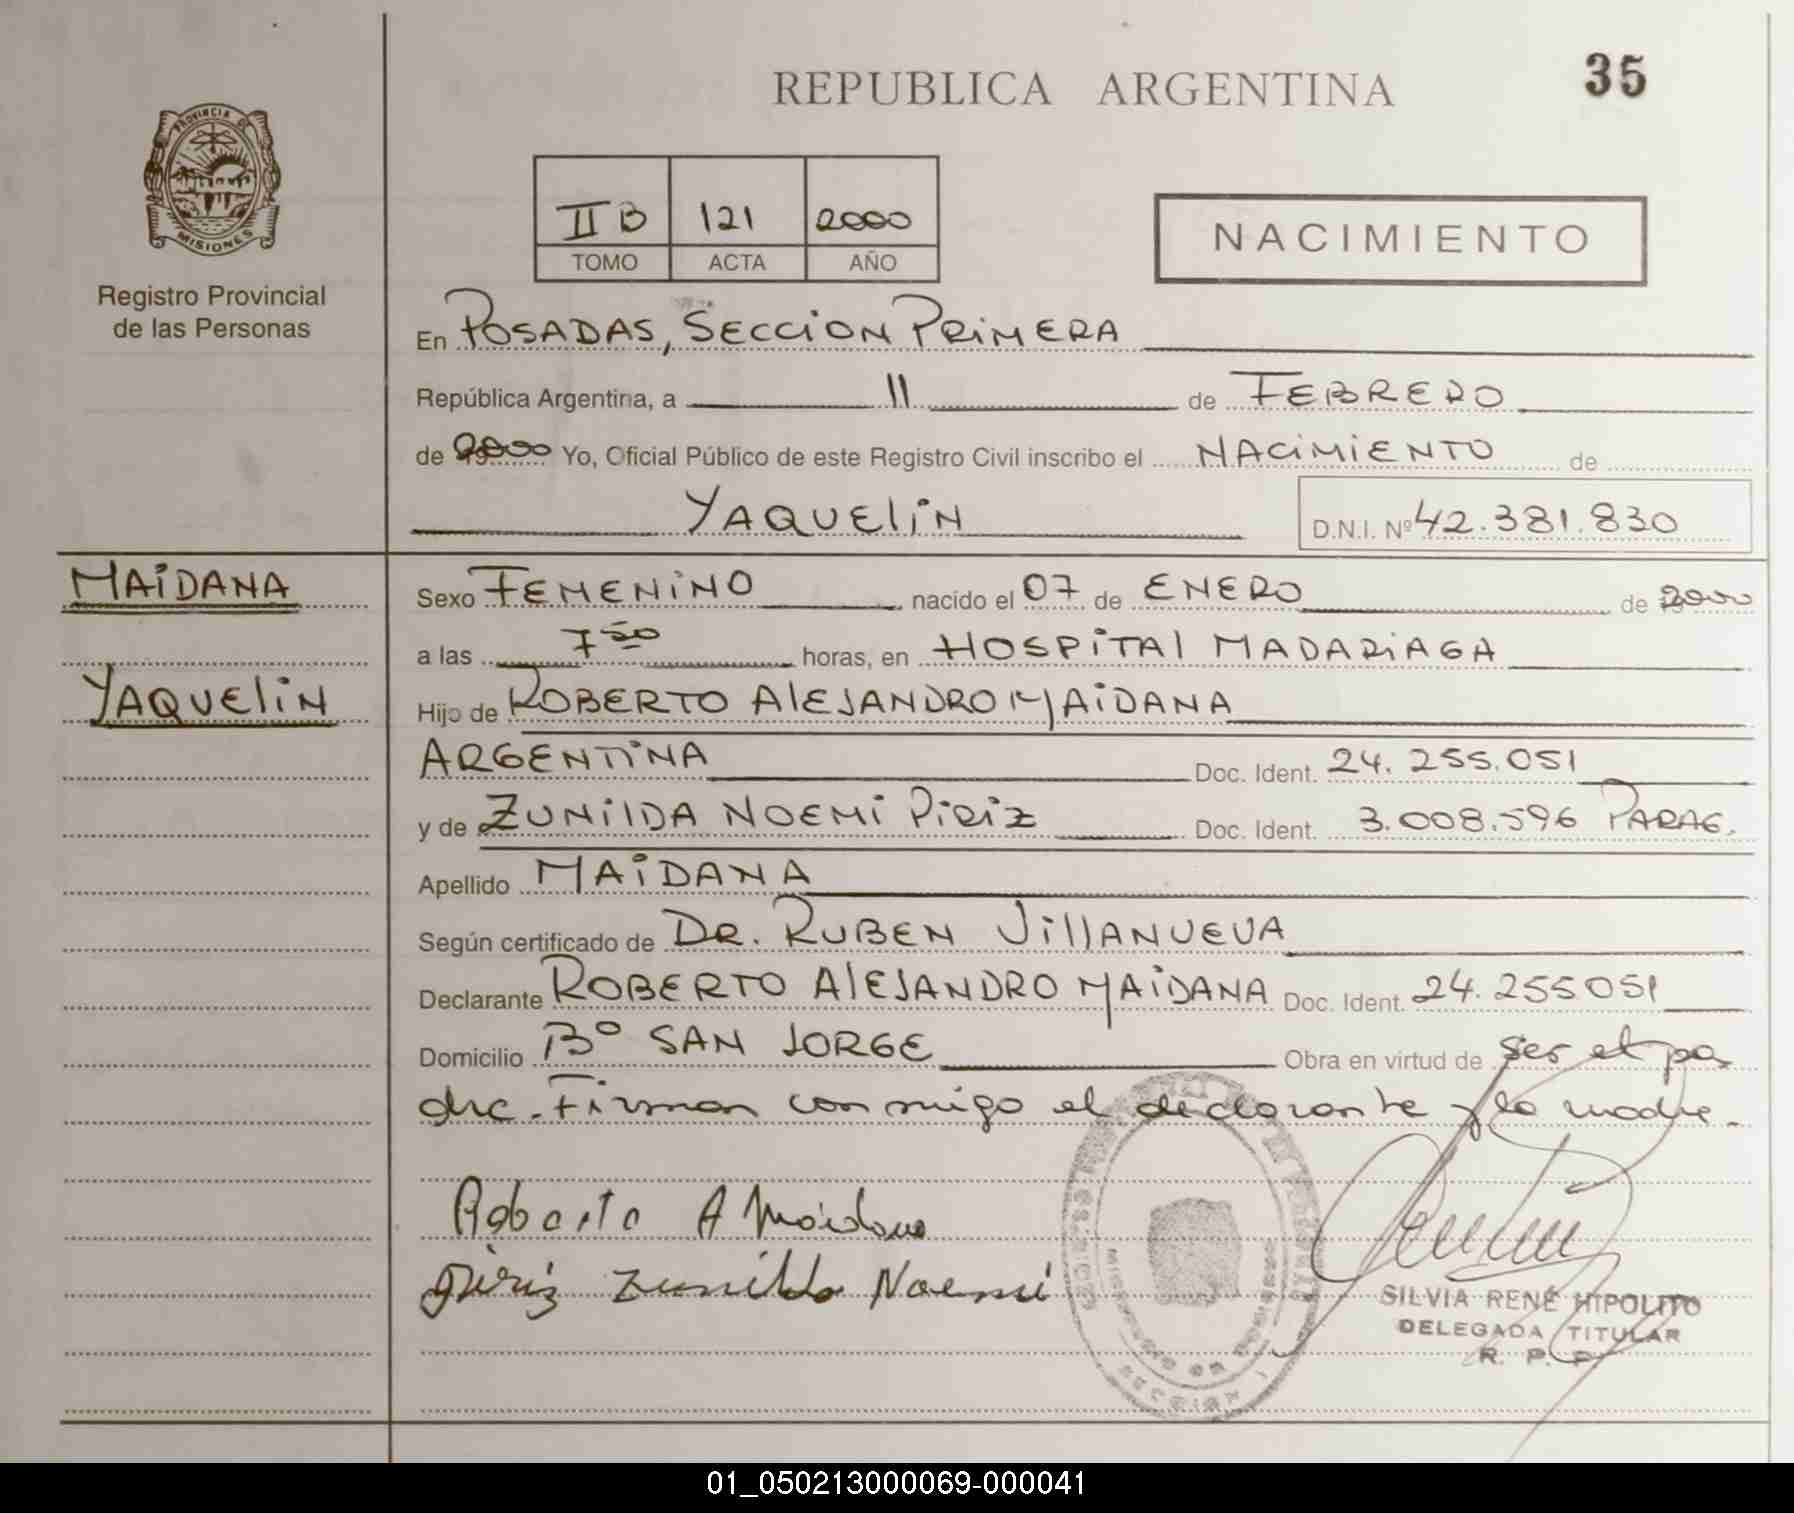 REPUBLICA ARGENTINA
35
PROVINCIA DE
MISIONES
Registro Provincial
de las Personas
II B 121 2000
TOMO ACTA AÑO
NACIMIENTO
En POSADAS, SECCION PRIMERA
República Argentina, a 11 de FEBRERO
de 2000 Yo, Oficial Público de este Registro Civil inscribo el NACIMIENTO de
YAQUELIN D.N.I. Nº 42.381.830
MAIDANA
YAQUELIN
Sexo FEMENINO nacido el 07 de ENERO de 2000
a las 7 50 horas, en HOSPITAL MADARIAGA
Hijo de ROBERTO ALEJANDRO MAIDANA
ARGENTINA Doc. Ident. 24.255.051
y de ZUNILDA NOEMI PIRIZ Doc. Ident. 3.008.596 PARAG.
Apellido MAIDANA
Según certificado de DR. RUBEN VILLANUEVA
Declarante ROBERTO ALEJANDRO MAIDANA Doc. Ident. 24.255051
Domicilio Bº SAN JORGE Obra en virtud de ser el pa
dre. Firman conmigo el declarante y la madre.
Roberto A Maidana
Piriz Zunilda Noemí
SILVIA RENÉ HIPOLITO
DELEGADA TITULAR
R. P. P.
01_050213000069-000041